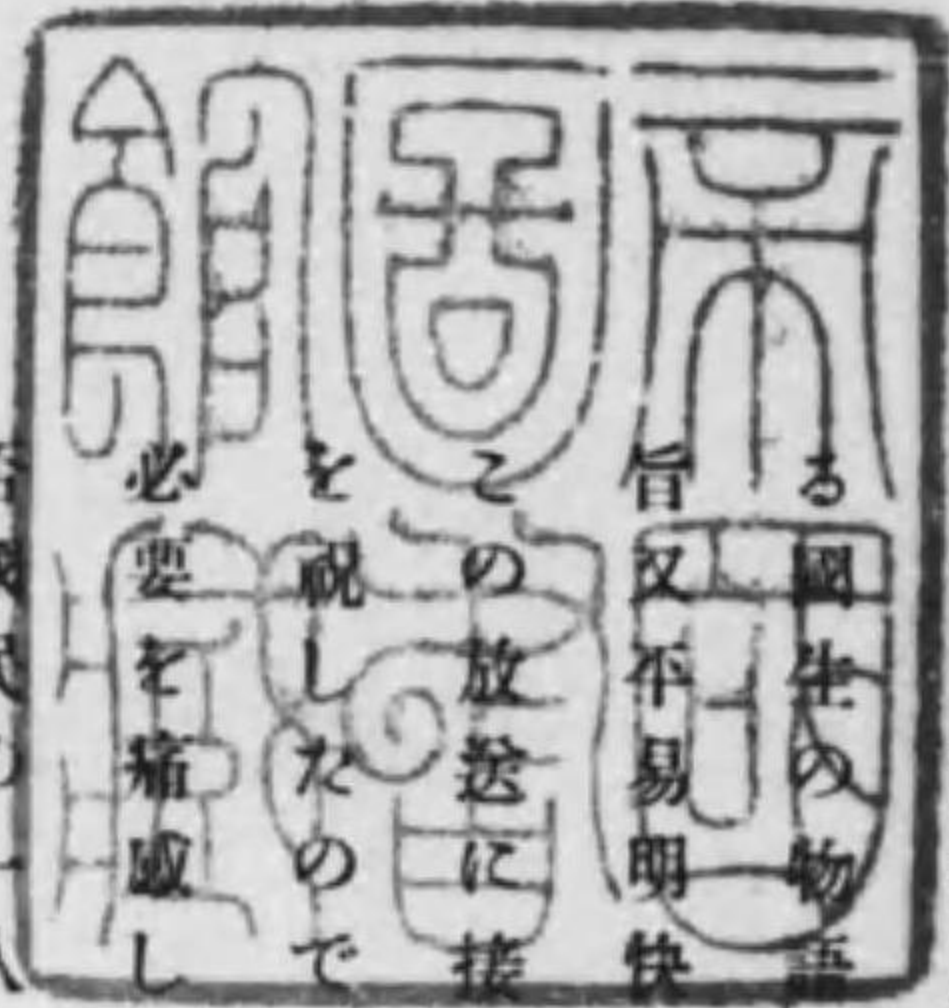 帝國
圖書
館藏
る國生の物語
旨又平易明快
この放送に接
を祝したので
必要を痛感し